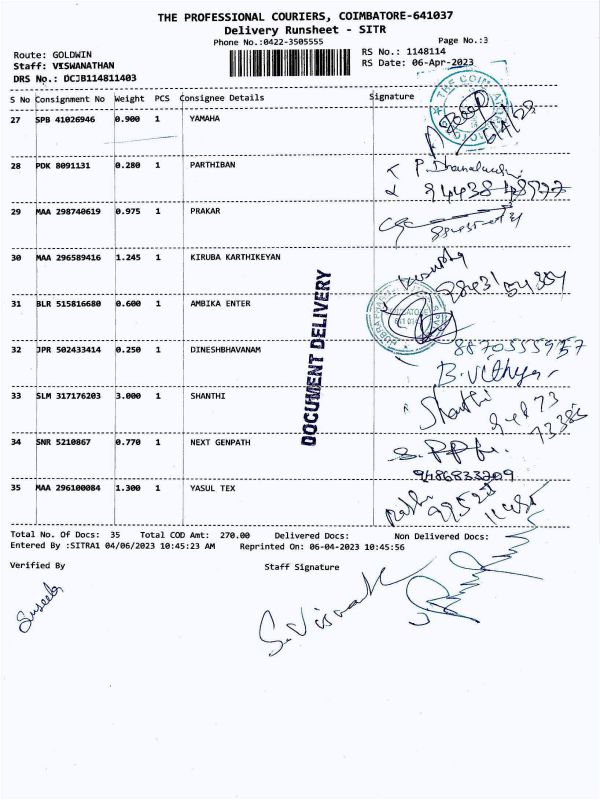 THE PROFESSIONAL COURIERS, COIMBATORE-641037
Delivery Runsheet - SITR
Phone No.:0422-3505555 Page No.:3
Route: GOLDWIN RS No.: 1148114
Staff: VISWANATHAN RS Date: 06-Apr-2023
DRS No.: DCJB114811403
S No Consignment No Weight PCS Consignee Details Signature
27 SPB 41026946 0.900 1 YAMAHA
6/4/23
28 PDK 8091131 0.280 1 PARTHIBAN
29 MAA 298740619 0.975 1 PRAKAR
30 MAA 296589416 1.245 1 KIRUBA KARTHIKEYAN
31 BLR 515816680 0.600 1 AMBIKA ENTER
32 JPR 502433414 0.250 1 DINESHBHAVANAM
B. Vithya
33 SLM 317176203 3.000 1 SHANTHI
Shanthi
34 SNR 5210867 0.770 1 NEXT GENPATH
9486833209
35 MAA 296100084 1.300 1 YASUL TEX
DOCUMENT DELIVERY
Total No. Of Docs: 35 Total COD Amt: 270.00 Delivered Docs: Non Delivered Docs:
Entered By :SITRA1 04/06/2023 10:45:23 AM Reprinted On: 06-04-2023 10:45:56
Verified By Staff Signature
Suseela
S. Viswath